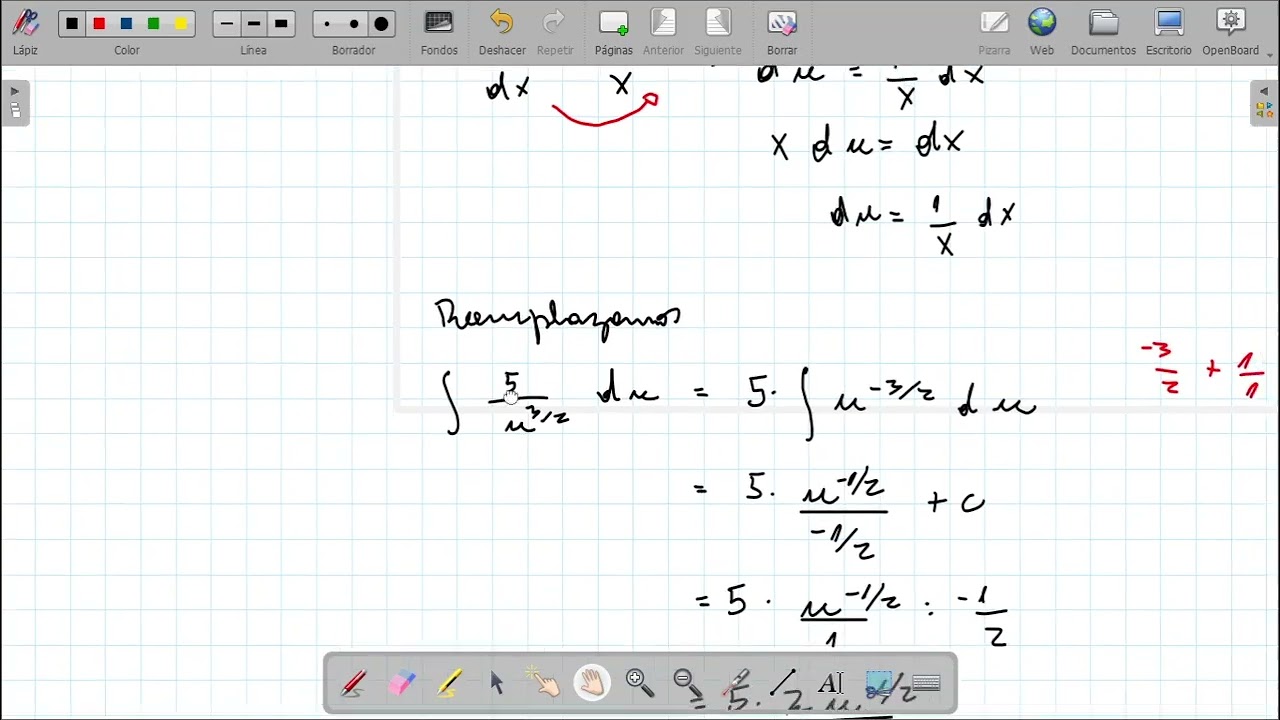 Lápiz Color Línea Borrador Fondos Deshacer Repetir Páginas Anterior Siguiente Borrar Pizarra Web Documentos Escritorio OpenBoard
du = 1/x dx
dx x
x du = dx
du = 1/x dx
Reemplazamos
∫ 5/u^3/2 du = 5· ∫ u^-3/2 du
-3/2 + 1/1
= 5· u^-1/2/-1/2 + c
= 5 · u^-1/2/1 : -1/2